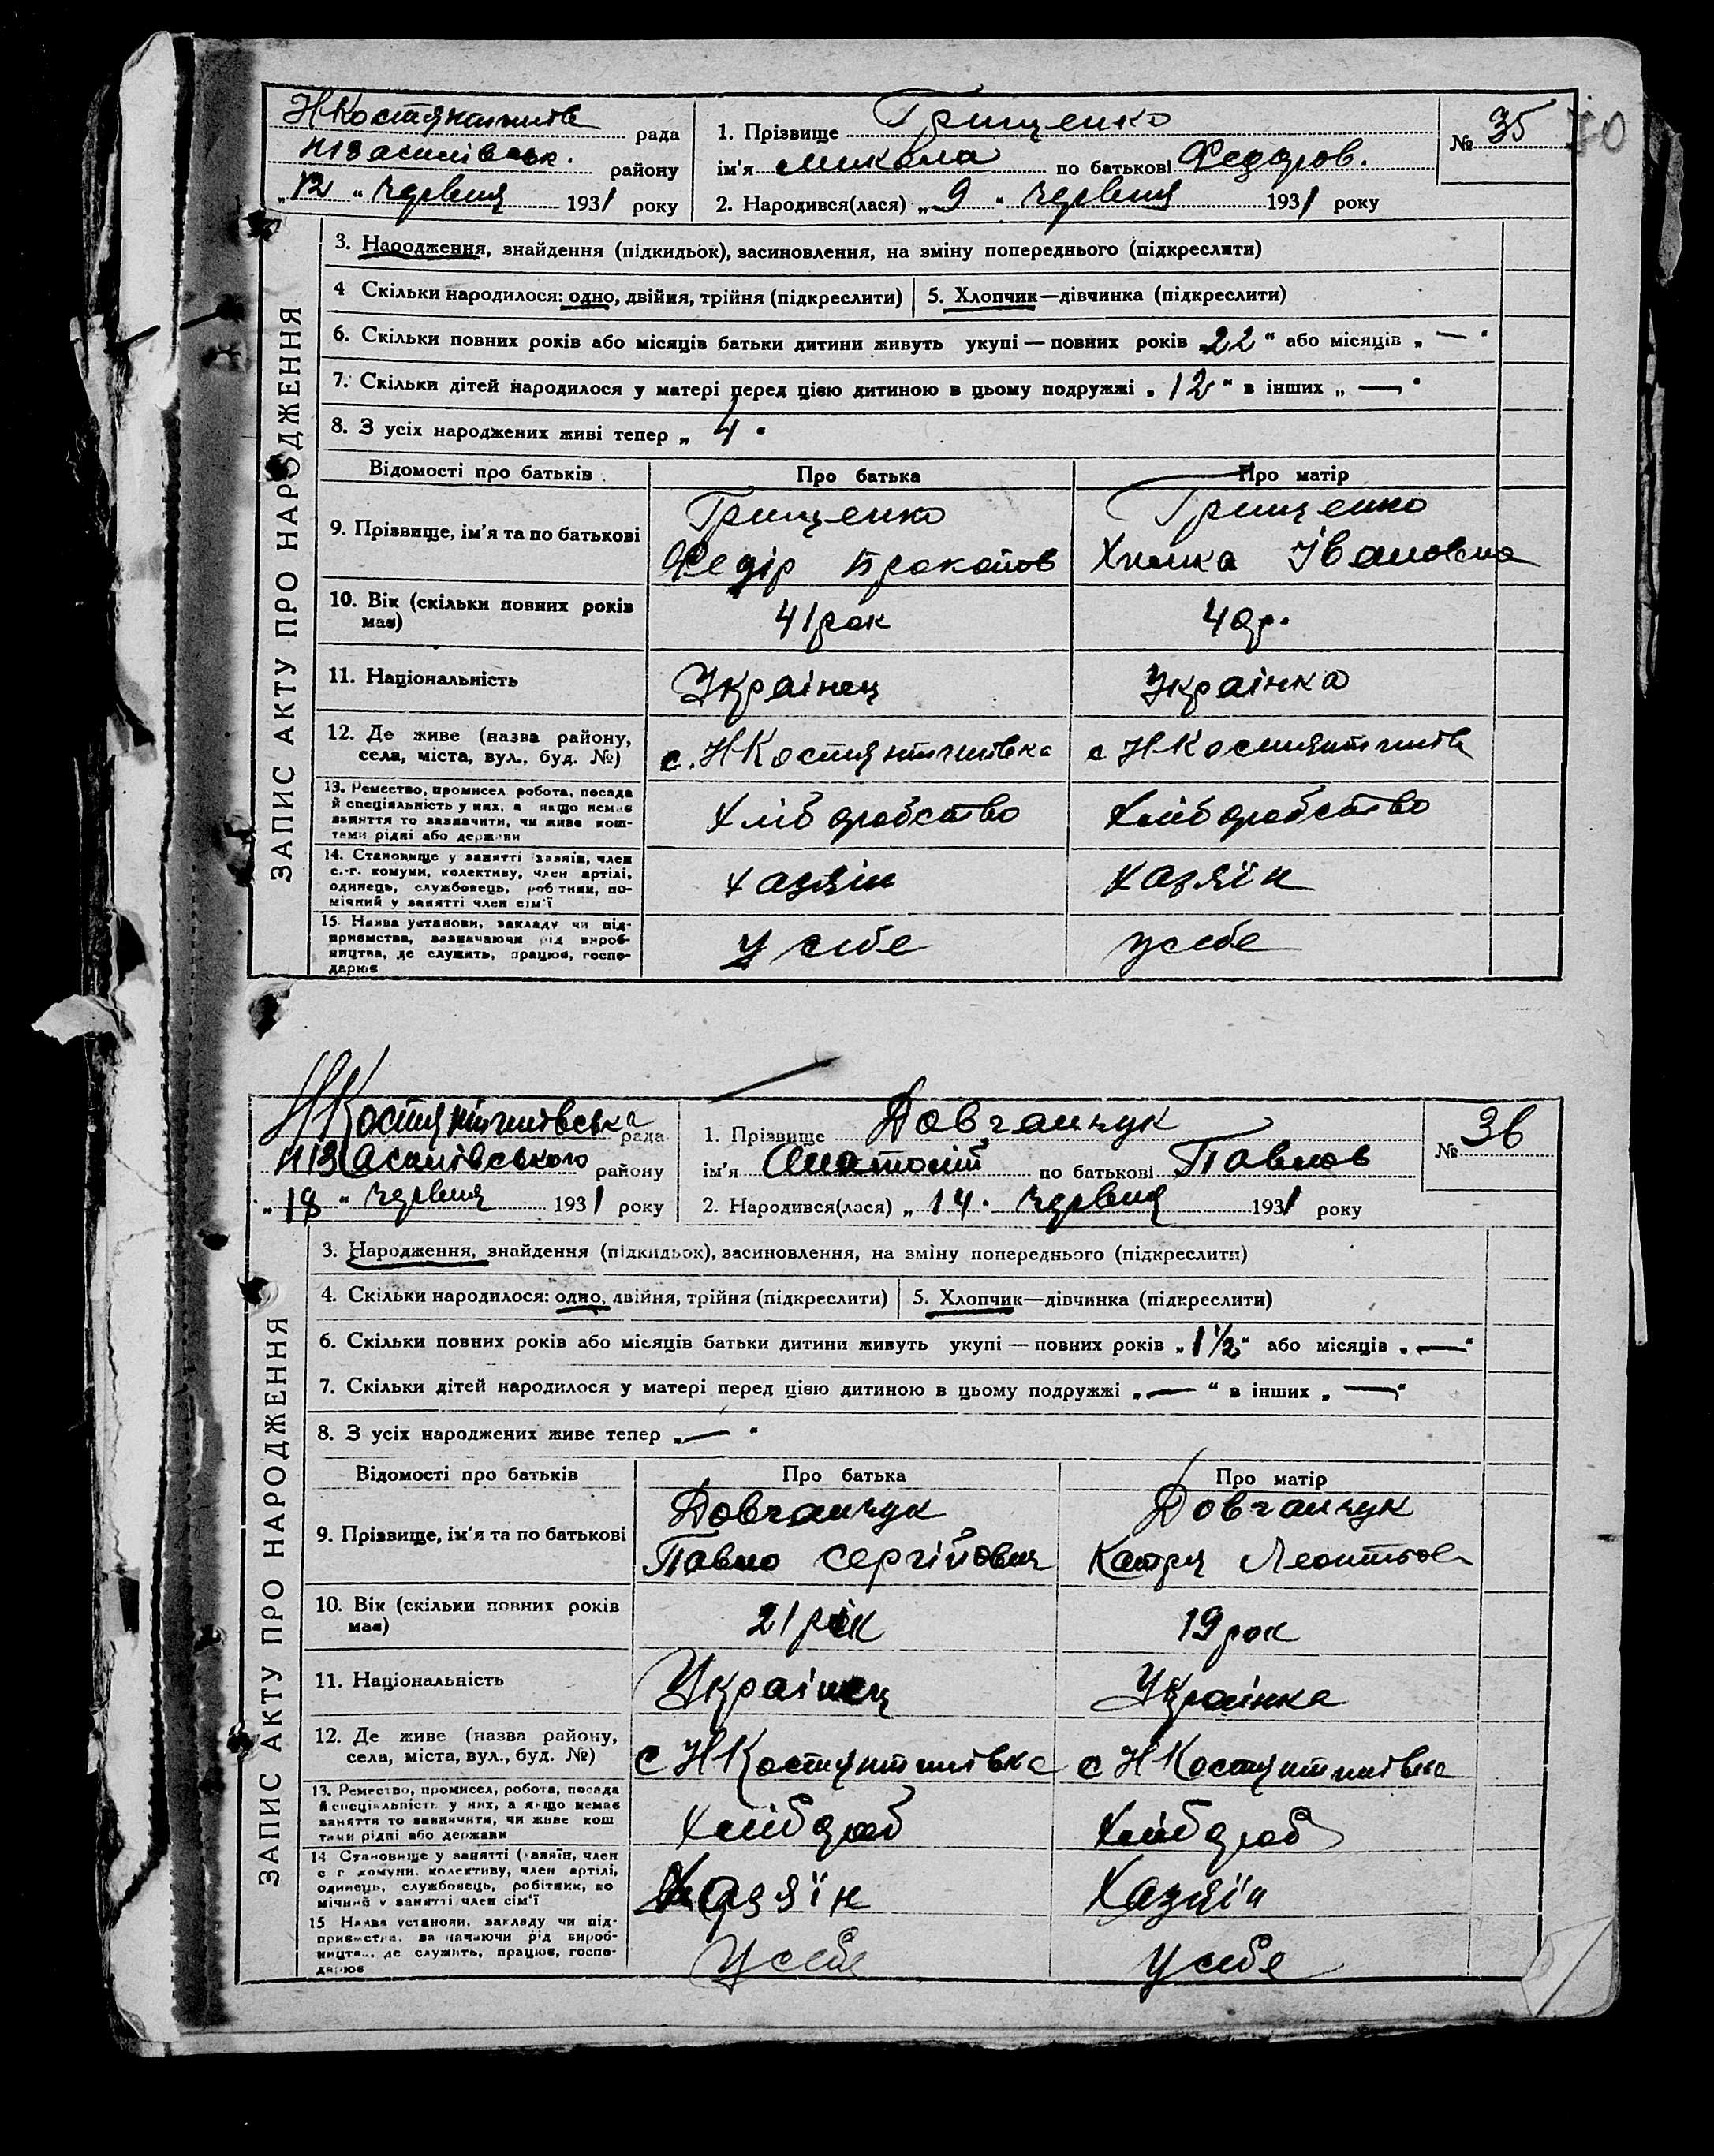 НКостянтинів рада
району
„12" червня 1931 року
1. Прізвище Грищенко
ім'я Микола по батькові Федоров.
2. Народився(лася) „9" червня 1931 року
№ 35
ЗАПИС АКТУ ПРО НАРОДЖЕННЯ
3. Народження, знайдення (підкидьок), засиновлення, на зміну попереднього (підкреслити)
4 Скільки народилося: одно, двійня, трійня (підкреслити) 5. Хлопчик—дівчинка (підкреслити)
6. Скільки повних років або місяців батьки дитини живуть укупі — повних років „22" або місяців „—"
7. Скільки дітей народилося у матері перед цією дитиною в цьому подружжі „12" в інших „—"
8. З усіх народжених живі тепер „4"
Відомості про батьків Про батька Про матір
9. Прізвище, ім'я та по батькові
Грищенко Грищенко
Федір Прокопов Химка Івановна
10. Вік (скільки повних років має) 41 рок 40 р.
11. Національність Українец Українка
12. Де живе (назва району,
села, міста, вул., буд. №) с. НКостянтинівка с НКостянтинів
13. Ремество, промисел робота, посада
й спеціяльність у них, а якщо немає
заняття то зазначити, чи живе кош-
тами рідні або держави
Хліборобство Хліборобство
14. Становище у занятті хазяїн, член
с.-г. комуни, колективу, член артілі,
одинець, службовець, робітник, по-
мічний у занятті член сім'ї
хазяін хазяїн
15. Назва установи, закладу чи під-
приємства, зазначаючи рід вироб-
ництва, де служить, працює, госпо-
дарює
у себе у себе
НКостянтинівська рада
району
„18" червня 1931 року
1. Прізвище Довганчук
ім'я Анатолій по батькові Павлов
2. Народився(лася) „14" червня 1931 року
№ 36
ЗАПИС АКТУ ПРО НАРОДЖЕННЯ
3. Народження, знайдення (підкидьок), засиновлення, на зміну попереднього (підкреслити)
4. Скільки народилося: одно, двійня, трійня (підкреслити) 5. Хлопчик—дівчинка (підкреслити)
6. Скільки повних років або місяців батьки дитини живуть укупі — повних років „1½" або місяців „—"
7. Скільки дітей народилося у матері перед цією дитиною в цьому подружжі „—" в інших „—"
8. З усіх народжених живе тепер „—"
Відомості про батьків Про батька Про матір
9. Прізвище, ім'я та по батькові
Довганчук Довганчук
Павло Сергійович Катря Леонтьов
10. Вік (скільки повних років має) 21 рік 19 рок
11. Національність Українец Українка
12. Де живе (назва району,
села, міста, вул., буд. №) с НКостянтинівка с НКостянтинівка
13. Ремество, промисел, робота, посада
й спеціяльність у них, а якщо немає
заняття то зазначити, чи живе кош
тами рідні або держави
Хлібороб Хлібороб
14 Становище у занятті (хазяїн, член
с г комуни, колективу, член артілі,
одинець, службовець, робітник, по
мічний у занятті член сім'ї
Хазяїн Хазяїн
15 Назва установи, закладу чи під-
приємства, зазначаючи рід вироб-
ництва, де служить, працює, госпо-
дарює
У себе У себе